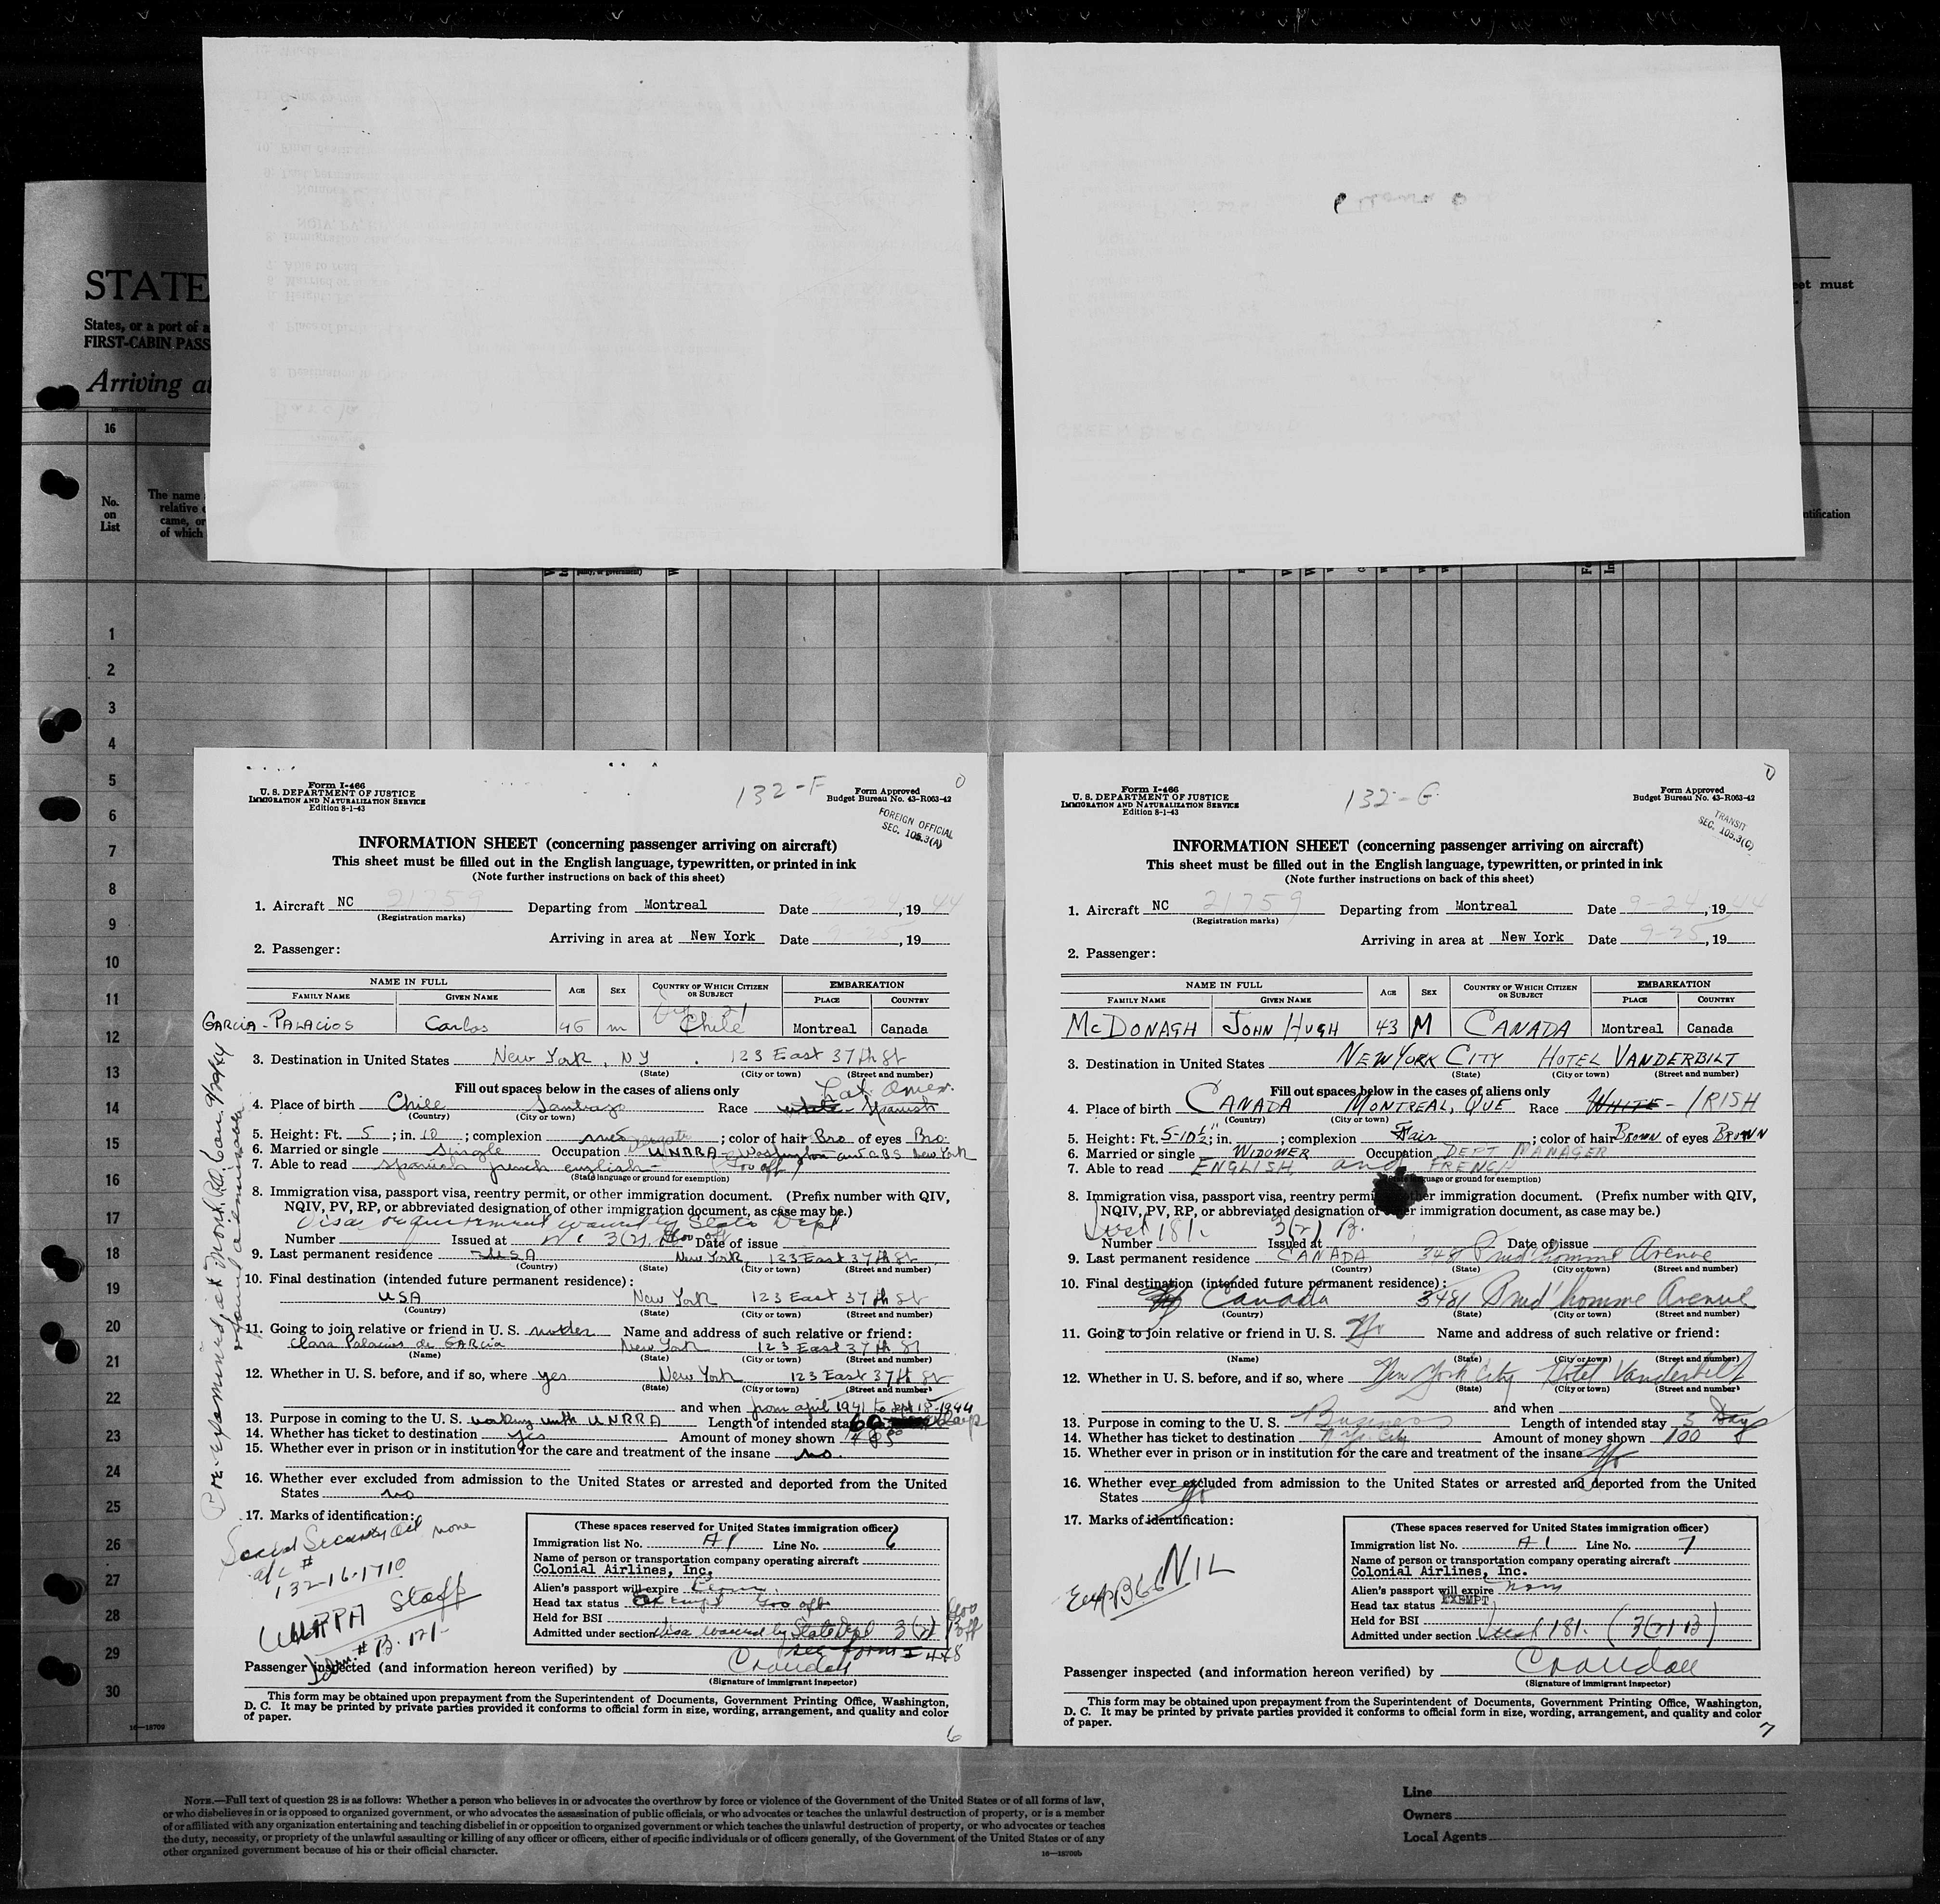 STATE
States, or a port of a
FIRST-CABIN PASS
Arriving at
et must
16
No.
on
List
The name
relative
came, or
of which
ntification
1
2
3
4
5
6
7
8
9
10
11
12
13
14
15
16
17
18
19
20
21
22
23
24
25
26
27
28
29
30
16—18709
Form I-466
U. S. DEPARTMENT OF JUSTICE
IMMIGRATION AND NATURALIZATION SERVICE
Edition 8-1-43
132-F
Form Approved
Budget Bureau No. 43-R063-42
FOREIGN OFFICIAL
SEC. 105.3(A)
INFORMATION SHEET (concerning passenger arriving on aircraft)
This sheet must be filled out in the English language, typewritten, or printed in ink
(Note further instructions on back of this sheet)
1. Aircraft NC 21759 Departing from Montreal Date , 19 44
(Registration marks)
Arriving in area at New York Date 9-25, 19
2. Passenger:
NAME IN FULL AGE SEX COUNTRY OF WHICH CITIZEN OR SUBJECT EMBARKATION
FAMILY NAME GIVEN NAME PLACE COUNTRY
GARCIA-PALACIOS Carlos 46 m Chile Montreal Canada
3. Destination in United States New York, NY. 123 East 37th St
(State) (City or town) (Street and number)
Fill out spaces below in the cases of aliens only
Lat. Amer.
4. Place of birth Chile Santiago Race white - Spanish
(Country) (City or town)
5. Height: Ft. 5; in. 10; complexion ; color of hair Bro of eyes Bro.
6. Married or single Single Occupation UNRRA - Washington New York
7. Able to read Spanish french english -
(State language or ground for exemption)
8. Immigration visa, passport visa, reentry permit, or other immigration document. (Prefix number with QIV,
NQIV, PV, RP, or abbreviated designation of other immigration document, as case may be.)
Visa requirement waived by State Dept
Number Issued at 3(2) Date of issue
9. Last permanent residence USA New York, 123 East 37th St
(Country) (State) (City or town) (Street and number)
10. Final destination (intended future permanent residence):
USA New York 123 East 37th St
(Country) (State) (City or town) (Street and number)
11. Going to join relative or friend in U. S. mother Name and address of such relative or friend:
Clara Palacios de Garcia New York 123 East 37th St
(Name) (State) (City or town) (Street and number)
12. Whether in U. S. before, and if so, where yes New York 123 East 37th St
(State) (City or town) (Street and number)
and when from april 1941 to Sept 18-1944
13. Purpose in coming to the U. S. working with UNRRA Length of intended stay 60 days
14. Whether has ticket to destination yes Amount of money shown
15. Whether ever in prison or in institution for the care and treatment of the insane no.
16. Whether ever excluded from admission to the United States or arrested and deported from the United
States no
17. Marks of identification: none
Social Security Act
a/c #
132-16-1710
UNRRA Staff
Iden. # B. 121-
(These spaces reserved for United States immigration officer)
Immigration list No. A1 Line No. 6
Name of person or transportation company operating aircraft
Colonial Airlines, Inc.
Alien's passport will expire
Head tax status Exempt Gov off
Held for BSI
Admitted under section Visa waived by State Dept 3(2) Gov off
see form I-448
Passenger inspected (and information hereon verified) by Crandall
(Signature of immigrant inspector)
This form may be obtained upon prepayment from the Superintendent of Documents, Government Printing Office, Washington,
D. C. It may be printed by private parties provided it conforms to official form in size, wording, arrangement, and quality and color
of paper.
6
Form I-466
U. S. DEPARTMENT OF JUSTICE
IMMIGRATION AND NATURALIZATION SERVICE
Edition 8-1-43
132-G
Form Approved
Budget Bureau No. 43-R063-42
TRANSIT
SEC. 105.3(C)
INFORMATION SHEET (concerning passenger arriving on aircraft)
This sheet must be filled out in the English language, typewritten, or printed in ink
(Note further instructions on back of this sheet)
1. Aircraft NC 21759 Departing from Montreal Date 9-24, 19 44
(Registration marks)
Arriving in area at New York Date 9-25, 19
2. Passenger:
NAME IN FULL AGE SEX COUNTRY OF WHICH CITIZEN OR SUBJECT EMBARKATION
FAMILY NAME GIVEN NAME PLACE COUNTRY
McDONAGH JOHN HUGH 43 M CANADA Montreal Canada
3. Destination in United States NEW YORK CITY HOTEL VANDERBILT
(State) (City or town) (Street and number)
Fill out spaces below in the cases of aliens only
4. Place of birth CANADA MONTREAL, QUE Race WHITE - IRISH
(Country) (City or town)
5. Height: Ft. 5-10½; in. ; complexion Fair; color of hair BROWN of eyes BROWN
6. Married or single WIDOWER Occupation DEPT MANAGER
7. Able to read ENGLISH and FRENCH
(State language or ground for exemption)
8. Immigration visa, passport visa, reentry permit, or other immigration document. (Prefix number with QIV,
NQIV, PV, RP, or abbreviated designation of other immigration document, as case may be.)
181. 3(2) B.
Number Issued at Date of issue
9. Last permanent residence CANADA 3481 Prud'homme Avenue
(Country) (State) (City or town) (Street and number)
10. Final destination (intended future permanent residence):
Canada 3481 Prud'homme Avenue
(Country) (State) (City or town) (Street and number)
11. Going to join relative or friend in U. S. No Name and address of such relative or friend:
(Name) (State) (City or town) (Street and number)
12. Whether in U. S. before, and if so, where New York City Hotel Vanderbilt
(State) (City or town) (Street and number)
and when
13. Purpose in coming to the U. S. Business Length of intended stay 5 Days
14. Whether has ticket to destination N.Y. City Amount of money shown 100
15. Whether ever in prison or in institution for the care and treatment of the insane No
16. Whether ever excluded from admission to the United States or arrested and deported from the United
States No
17. Marks of identification:
NIL
(These spaces reserved for United States immigration officer)
Immigration list No. A1 Line No. 7
Name of person or transportation company operating aircraft
Colonial Airlines, Inc.
Alien's passport will expire none
Head tax status EXEMPT
Held for BSI
Admitted under section 181. (3(2) B)
Passenger inspected (and information hereon verified) by Crandall
(Signature of immigrant inspector)
This form may be obtained upon prepayment from the Superintendent of Documents, Government Printing Office, Washington,
D. C. It may be printed by private parties provided it conforms to official form in size, wording, arrangement, and quality and color
of paper.
7
NOTE.—Full text of question 28 is as follows: Whether a person who believes in or advocates the overthrow by force or violence of the Government of the United States or of all forms of law,
or who disbelieves in or is opposed to organized government, or who advocates the assassination of public officials, or who advocates or teaches the unlawful destruction of property, or is a member
of or affiliated with any organization entertaining and teaching disbelief in or opposition to organized government or which teaches the unlawful destruction of property, or who advocates or teaches
the duty, necessity, or propriety of the unlawful assaulting or killing of any officer or officers, either of specific individuals or of officers generally, of the Government of the United States or of any
other organized government because of his or their official character.
16—18709b
Line
Owners
Local Agents